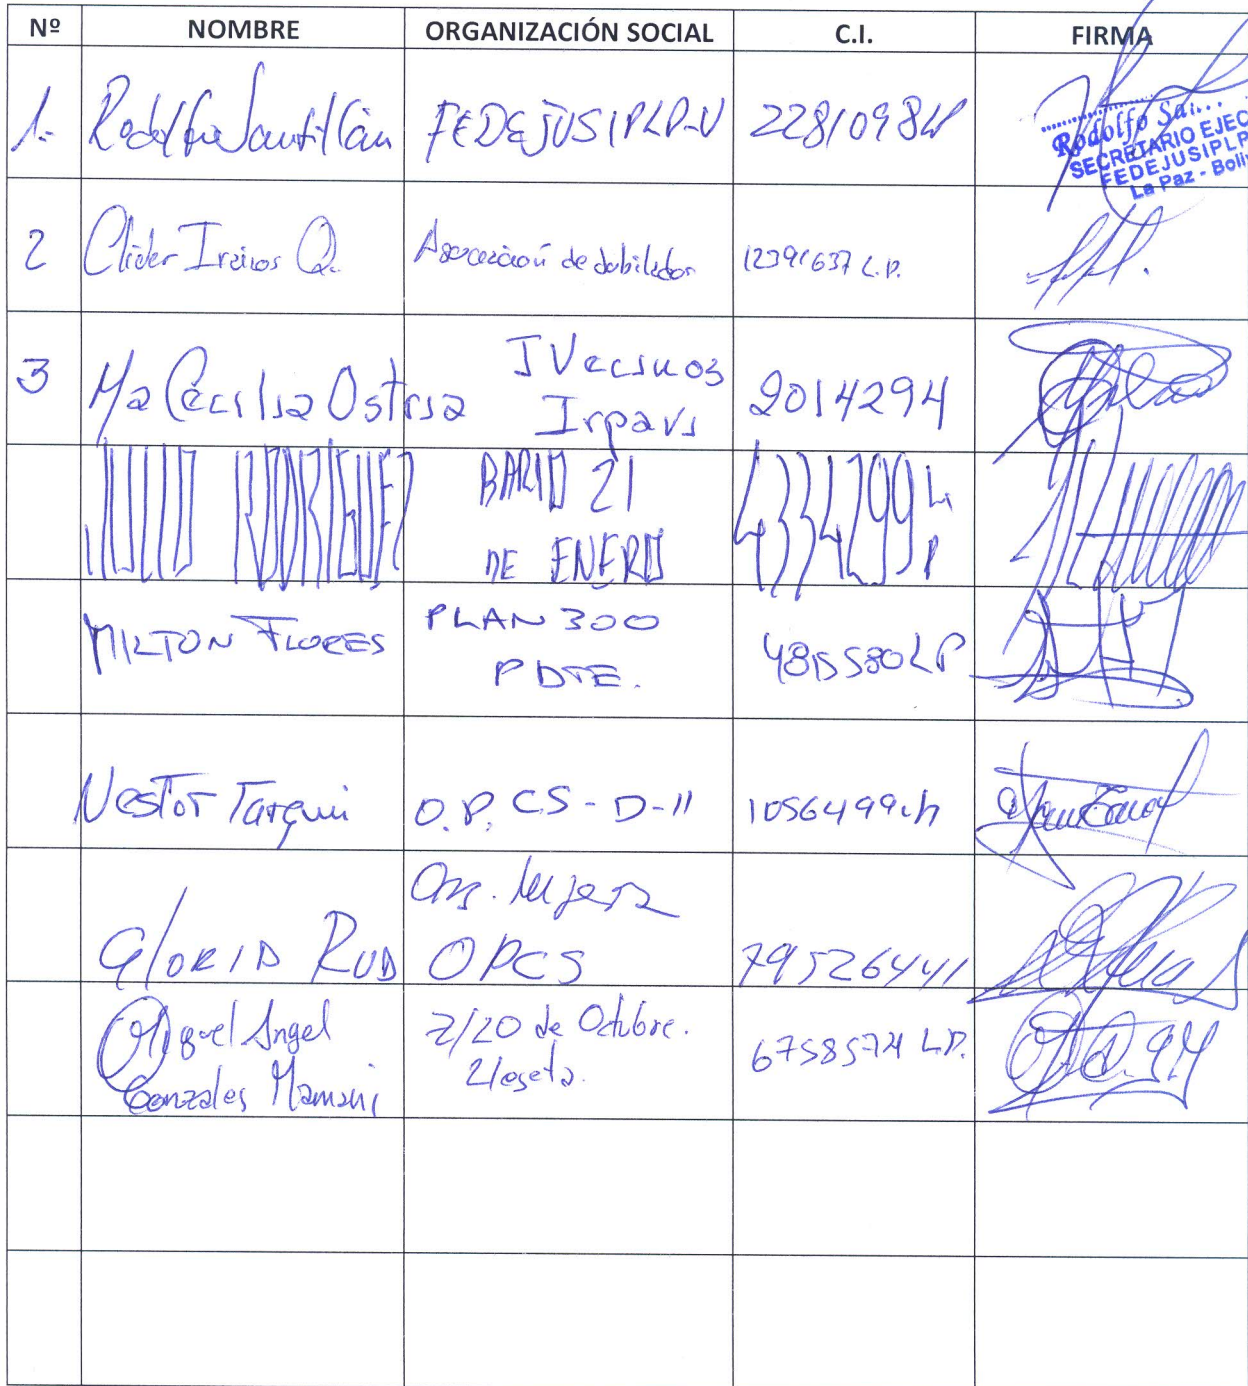 Nº NOMBRE ORGANIZACIÓN SOCIAL C.I. FIRMA
1.- Rodolfo Santillán FEDEJUSIPLP-V 2281098 LP
Rodolfo
SECRETARIO EJEC
FEDEJUSIPLP
La Paz - Boliv
2 Clider Irainos Q. Asociación de Jubilados 12391637 L.P.
3 Ma Cecilia Ostria J Vecinos
Irpavi 2014294
JULIO RODRIGUEZ BARIO 21
DE ENERO 4334299 LP
MILTON FLORES PLAN 300
PDTE. LP
Nestor Tarqui O.P. CS - D-11 1056499
GLORIA Org. Mujeres
OPCS 79526441
Miguel Angel
Gonzales Mamani Z/20 de Octubre.
6758574 LP.